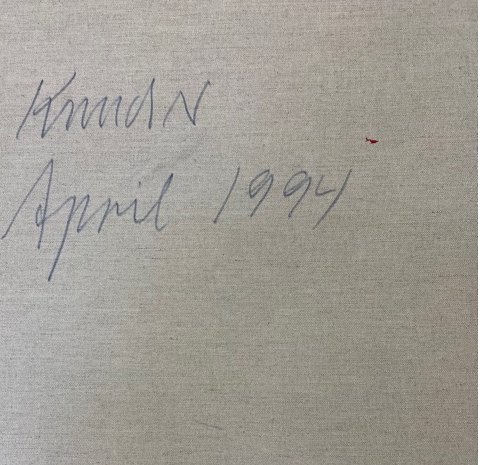 Knud N
April 1994